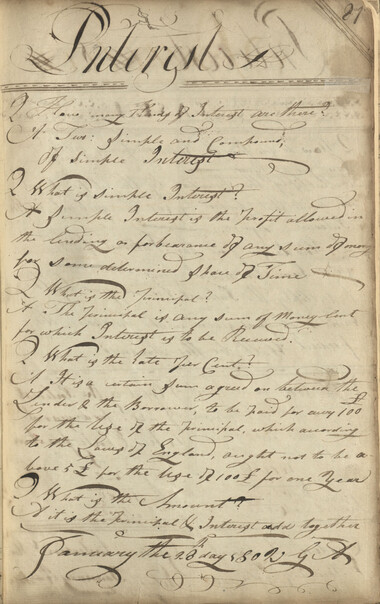 21
Interest
Q How many kinds of Interest are there?
A Two: Simple and Compound,
Of Simple Interest
Q What is Simple Interest?
A Simple Interest is the Profit allowed in
the lending or forbearance of any sum of mony
for some determined space of Time
Q What is the Principal?
A The Principal is any sum of Money lent
for which Interest is to be Received.
Q What is the rate Per Cent.?
A It is a certain Sum agreed on between the
Lender & the Borrower, to be paid for every £100
for the Use of the Principal, which according
to the Laws of England, ought not to be a
bove 5£ for the Use of 100£ for one Year
Q What is the Amount?
A it is the Principal & Interest add together
January the 28th day 1802